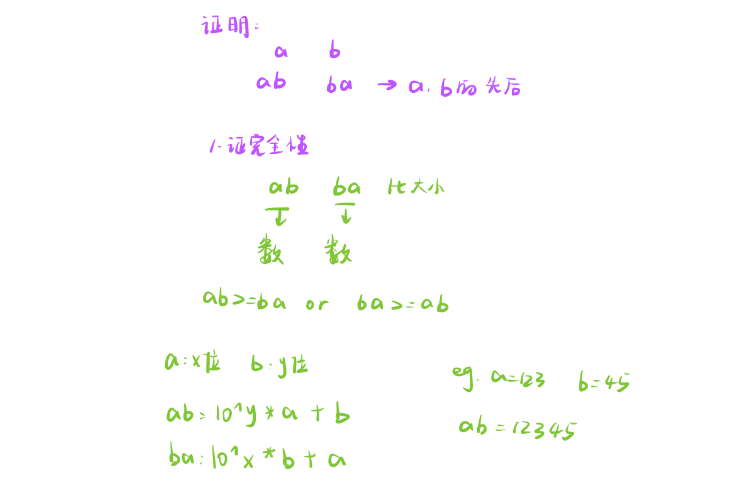 证明:
a b
ab ba → a.b的先后
1.证完全性
ab ba 比大小
↓ ↓
数 数
ab>=ba or ba>=ab
a:x位 b:y位
ab:10^y*a+b
ba:10^x*b+a
eg. a=123 b=45
ab=12345